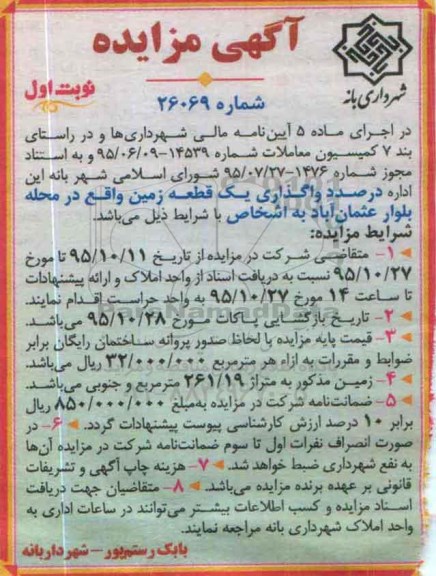 آگهی مزایده
شهرداری بانه
نوبت اول
شماره ۲۶۰۶۹
در اجرای ماده ۵ آیین‌نامه مالی شهرداری‌ها و در راستای
بند ۷ کمیسیون معاملات شماره ۱۴۵۳۹-۹۵/۰۶/۰۹ و به استناد
مجوز شماره ۱۴۷۶-۹۵/۰۷/۲۷ شورای اسلامی شهر بانه این
اداره درصدد واگذاری یک قطعه زمین واقع در محله
بلوار عثمان‌آباد به اشخاص با شرایط ذیل می‌باشد.
شرایط مزایده:
۱- متقاضی شرکت در مزایده از تاریخ ۹۵/۱۰/۱۱ تا مورخ
۹۵/۱۰/۲۷ نسبت به دریافت اسناد از واحد املاک و ارائه پیشنهادات
تا ساعت ۱۴ مورخ ۹۵/۱۰/۲۷ به واحد حراست اقدام نمایند.
۲- تاریخ بازگشایی پاکات مورخ ۹۵/۱۰/۲۸ می‌باشد.
۳- قیمت پایه مزایده با لحاظ صدور پروانه ساختمان رایگان برابر
ضوابط و مقررات به ازاء هر مترمربع ۳۲/۰۰۰/۰۰۰ ریال می‌باشد.
۴- زمین مذکور به متراژ ۲۶۱/۱۹ مترمربع و جنوبی می‌باشد.
۵- ضمانت‌نامه شرکت در مزایده به‌مبلغ ۸۵۰/۰۰۰/۰۰۰ ریال
برابر ۱۰ درصد ارزش کارشناسی پیوست پیشنهادات گردد. ۶- در
صورت انصراف نفرات اول تا سوم ضمانت‌نامه شرکت در مزایده آن‌ها
به نفع شهرداری ضبط خواهد شد. ۷- هزینه چاپ آگهی و تشریفات
قانونی بر عهده برنده مزایده می‌باشد. ۸- متقاضیان جهت دریافت
اسناد مزایده و کسب اطلاعات بیشتر می‌توانند در ساعات اداری به
واحد املاک شهرداری بانه مراجعه نمایند.
بابک رستم‌پور - شهردار بانه